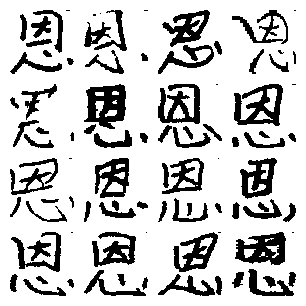 恩恩恩恩
恩恩恩恩
恩恩恩恩
恩恩恩恩